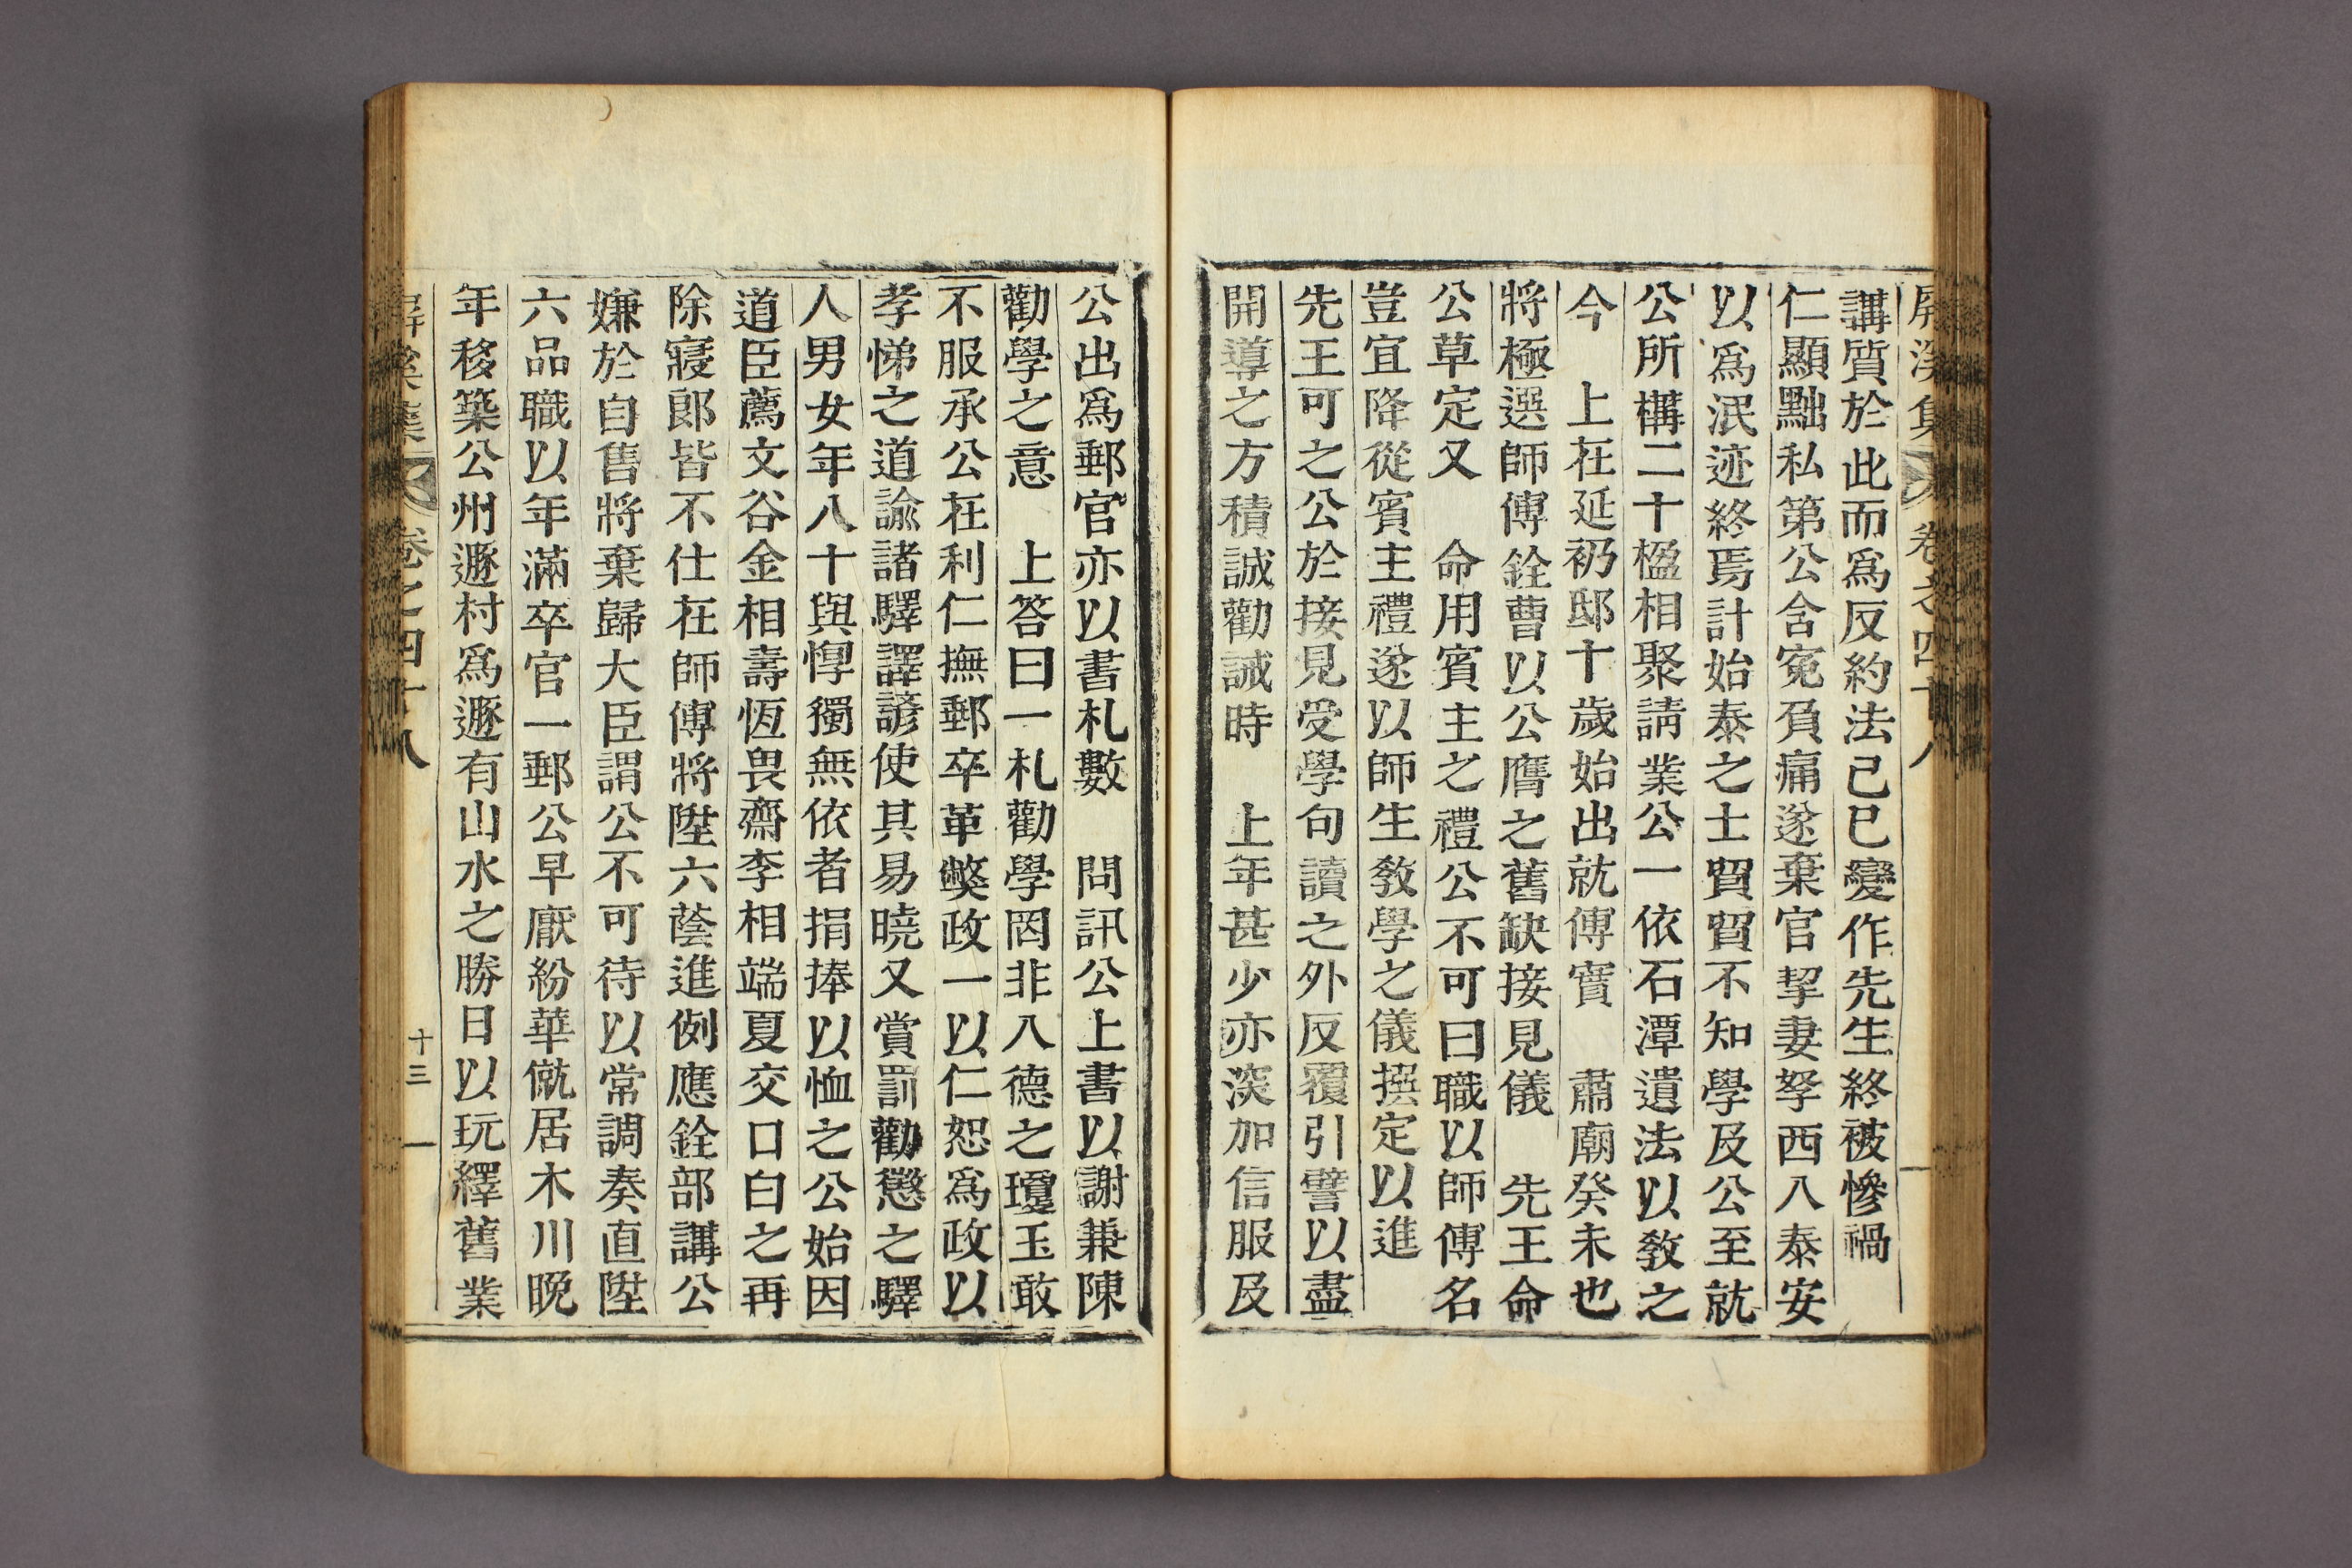 屛溪集 卷之四十八
講質於此而爲反約法己巳變作先生終被慘禍
仁顯黜私第公含寃負痛遂棄官挈妻孥西入泰安
以爲泯迹終焉計始泰之士貿貿不知學及公至就
公所構二十楹相聚請業公一依石潭遺法以敎之
今　上在延礽邸十歲始出就傅實　肅廟癸未也
將極選師傅銓曹以公膺之舊缺接見儀　先王命
公草定又　命用賓主之禮公不可曰職以師傅名
豈宜降從賓主禮遂以師生敎學之儀撰定以進
先王可之公於接見受學句讀之外反覆引譬以盡
開導之方積誠勸誡時　上年甚少亦深加信服及
公出爲郵官亦以書札數　問訊公上書以謝兼陳
勸學之意　上答曰一札勸學罔非八德之瓊玉敢
不服承公在利仁撫郵卒革獘政一以仁恕爲政以
孝悌之道諭諸驛譯諺使其易曉又賞罰勸懲之驛
人男女年八十與惸獨無依者捐捧以恤之公始因
道臣薦文谷金相壽恆畏齋李相端夏交口白之再
除寢郞皆不仕在師傅將陞六蔭進例應銓部講公
嫌於自售將棄歸大臣謂公不可待以常調奏直陞
六品職以年滿卒官一郵公早厭紛華僦居木川晩
年移築公州遯村爲遯有山水之勝日以玩繹舊業
屛溪集 卷之四十八 十三